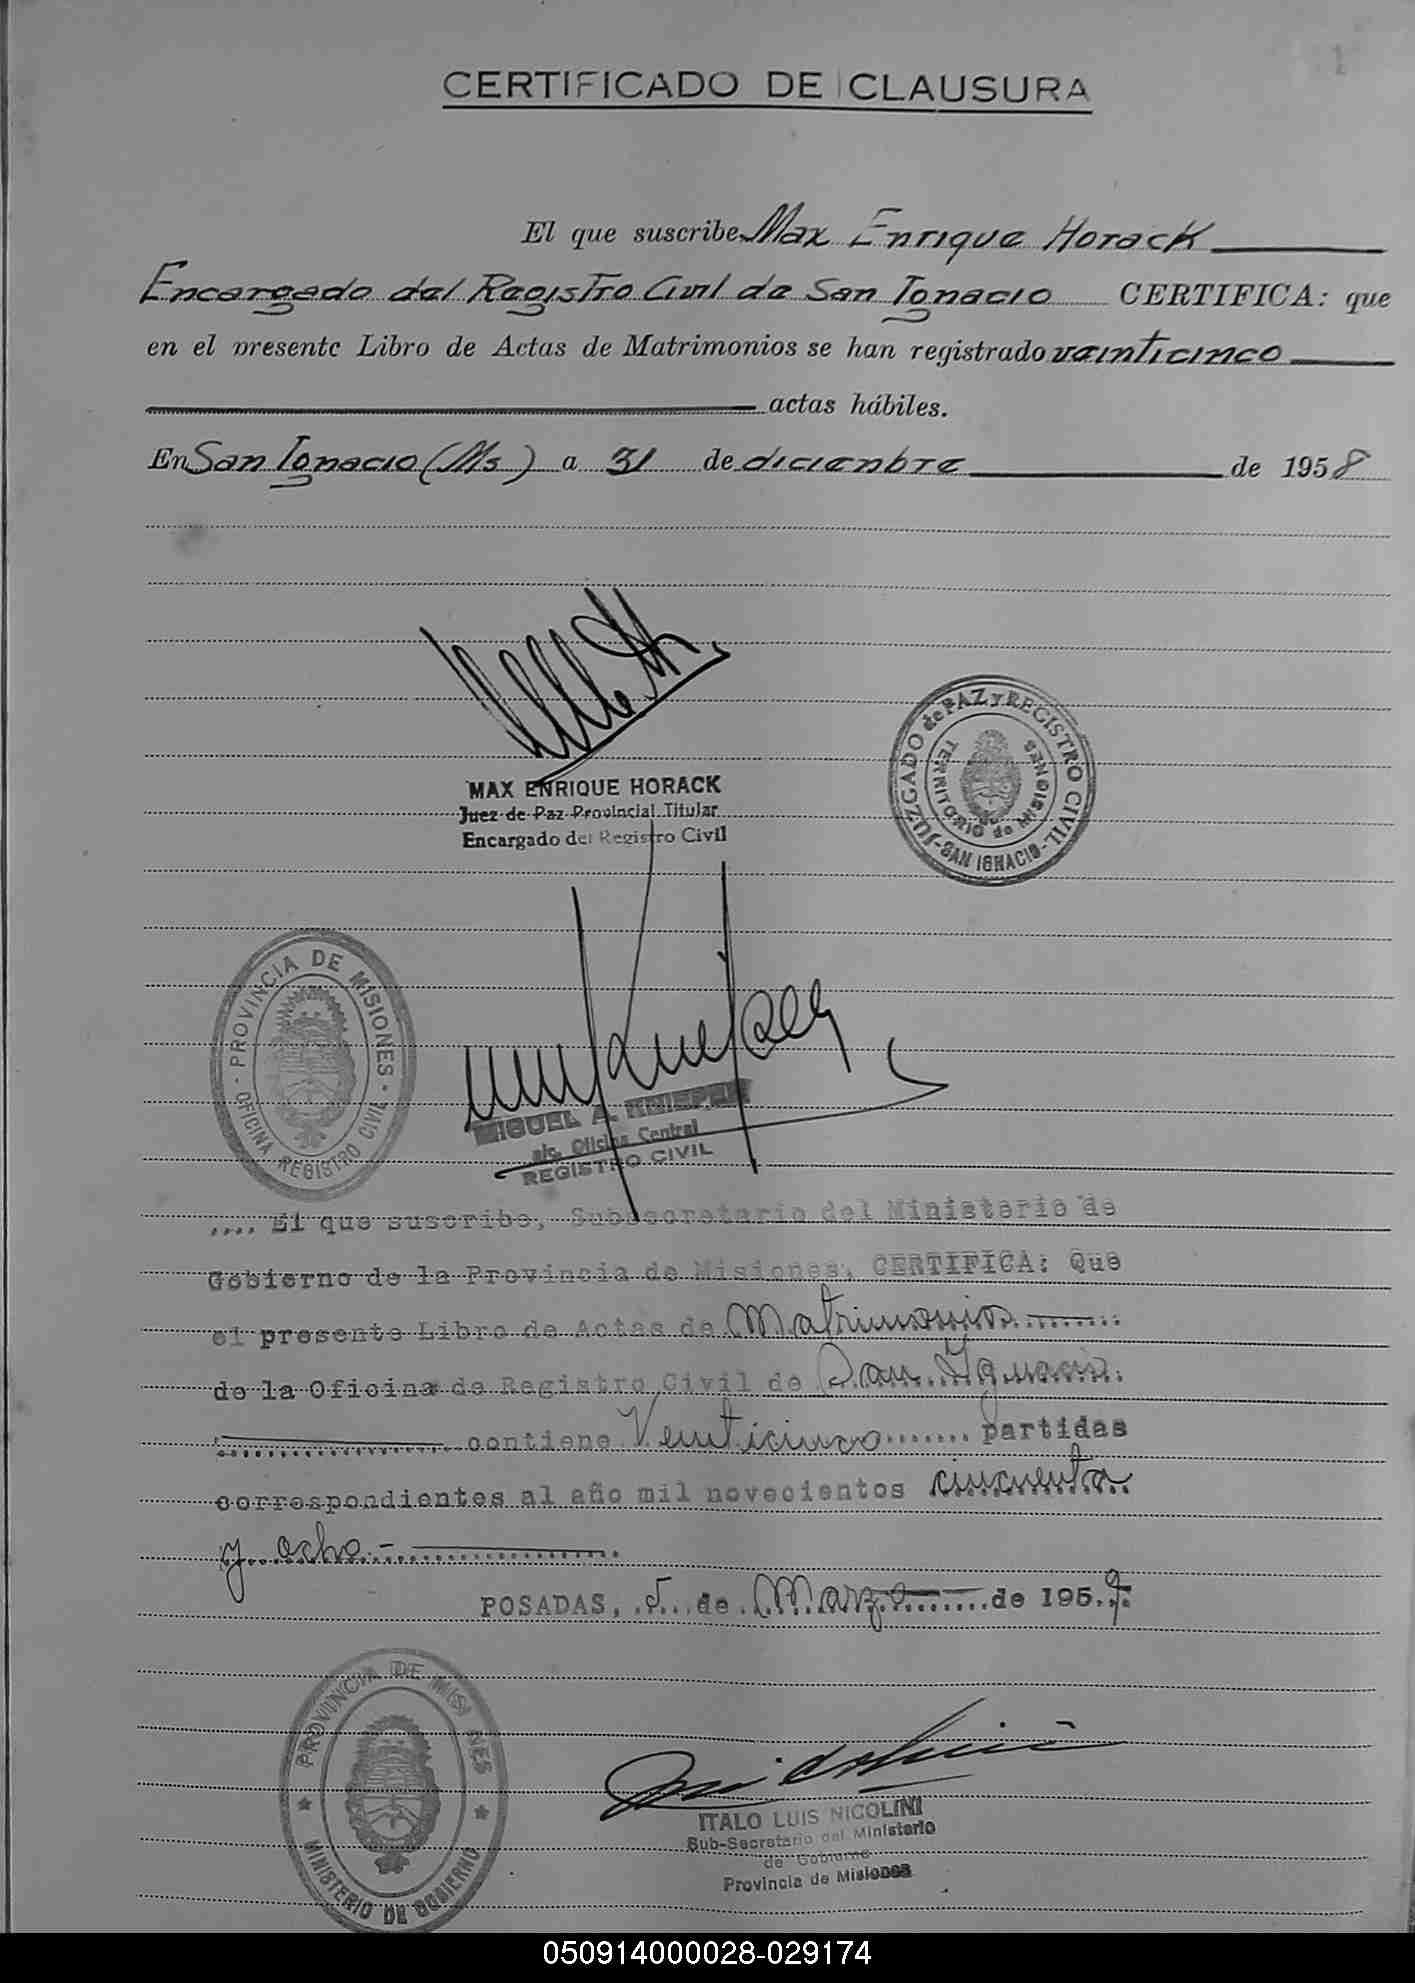 1
CERTIFICADO DE CLAUSURA
El que suscribe Max Enrique Horack
Encargado del Registro Civil de San Ignacio CERTIFICA: que
en el presente Libro de Actas de Matrimonios se han registrado veinticinco
actas hábiles.
En San Ignacio (Ms) a 31 de diciembre de 1958
MAX ENRIQUE HORACK
Juez de Paz Provincial Titular
Encargado del Registro Civil
JUZGADO de PAZ y REGISTRO CIVIL
TERRITORIO de MISIONES
-SAN IGNACIO-
PROVINCIA DE MISIONES
OFICINA REGISTRO CIVIL
MIGUEL A.
a/c. Oficina Central
REGISTRO CIVIL
.... El que suscribe, Subsecretario del Ministerio de
Gobierno de la Provincia de Misiones, CERTIFICA: Que
el presente Libro de Actas de Matrimonios
de la Oficina de Registro Civil de San Ignacio
contiene Venticinco partidas
correspondientes al año mil novecientos cincuenta
y ocho.-
POSADAS, 5 de Marzo de 1959.
PROVINCIA DE MISIONES
MINISTERIO DE GOBIERNO
ITALO LUIS NICOLINI
Sub-Secretario del Ministerio
de Gobierno
Provincia de Misiones
050914000028-029174